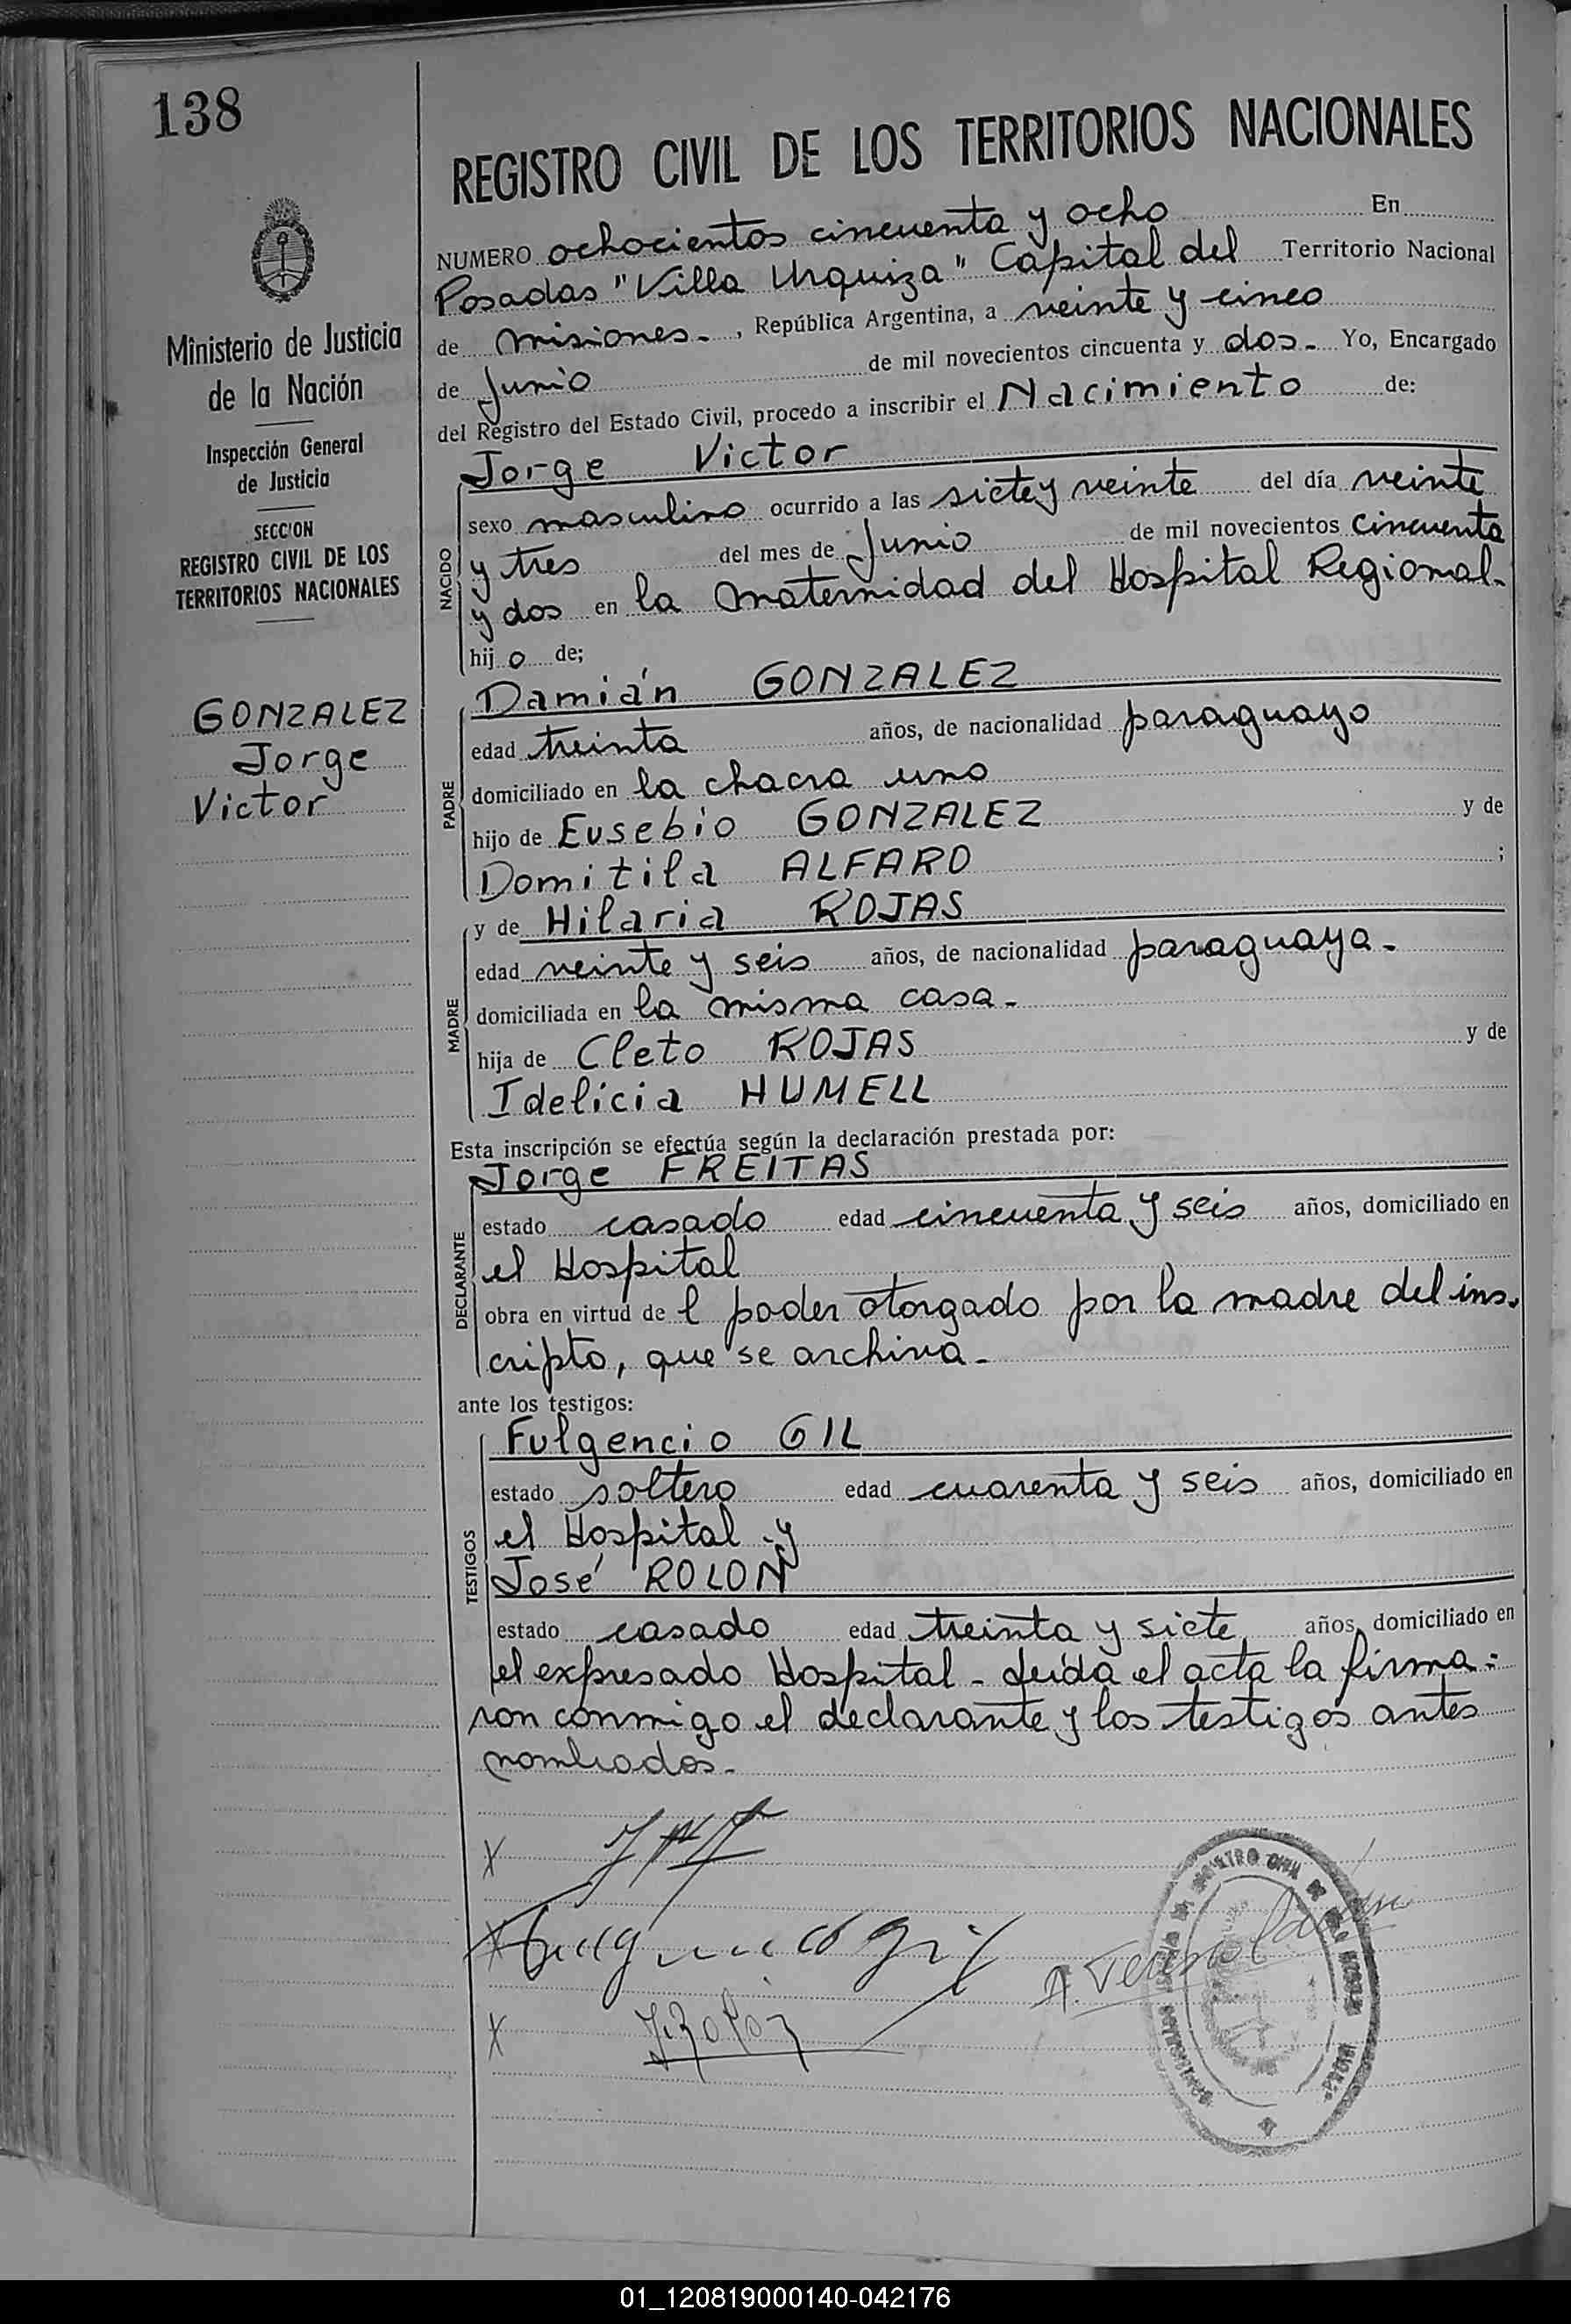 138
REGISTRO CIVIL DE LOS TERRITORIOS NACIONALES
NUMERO ochocientos cincuenta y ocho En
Posadas "Villa Urquiza" Capital del Territorio Nacional
de Misiones-, República Argentina, a veinte y cinco
de Junio de mil novecientos cincuenta y dos- Yo, Encargado
del Registro del Estado Civil, procedo a inscribir el Nacimiento de:
Jorge Victor
sexo masculino ocurrido a las siete y veinte del día veinte
y tres del mes de Junio de mil novecientos cincuenta
y dos en la Maternidad del Hospital Regional-
hijo de;
NACIDO
Damián GONZALEZ
edad treinta años, de nacionalidad paraguayo
domiciliado en la chacra uno
hijo de Eusebio GONZALEZ y de
Domitila ALFARO ;
PADRE
y de Hilaria ROJAS
edad veinte y seis años, de nacionalidad paraguaya-
domiciliada en la misma casa-
hija de Cleto ROJAS y de
Idelicia HUMELL
MADRE
Esta inscripción se efectúa según la declaración prestada por:
Jorge FREITAS
estado casado edad cincuenta y seis años, domiciliado en
el Hospital
obra en virtud de l poder otorgado por la madre del ins-
cripto, que se archiva-
DECLARANTE
ante los testigos:
Fulgencio GIL
estado soltero edad cuarenta y seis años, domiciliado en
el Hospital y
José ROLON
estado casado edad treinta y siete años, domiciliado en
el expresado Hospital- Leída el acta la firma=
ron conmigo el declarante y los testigos antes
nombrados-
TESTIGOS
Ministerio de Justicia
de la Nación
Inspección General
de Justicia
SECCION
REGISTRO CIVIL DE LOS
TERRITORIOS NACIONALES
GONZALEZ
Jorge
Victor
X
X
X
J. Rolón
01_120819000140-042176